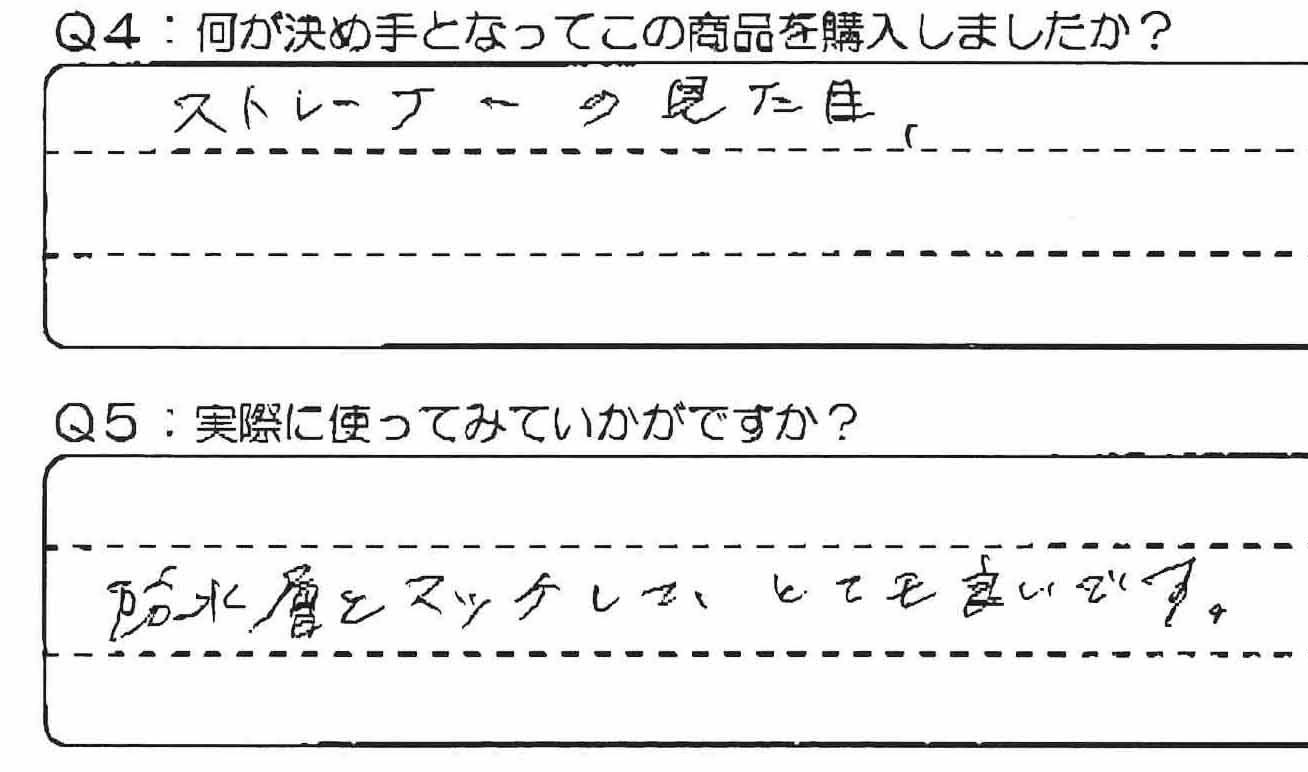 Q4：何が決め手となってこの商品を購入しましたか？
ストレーナーの見た目、
Q5：実際に使ってみていかがですか？
防水層とマッチして、とても良いです。